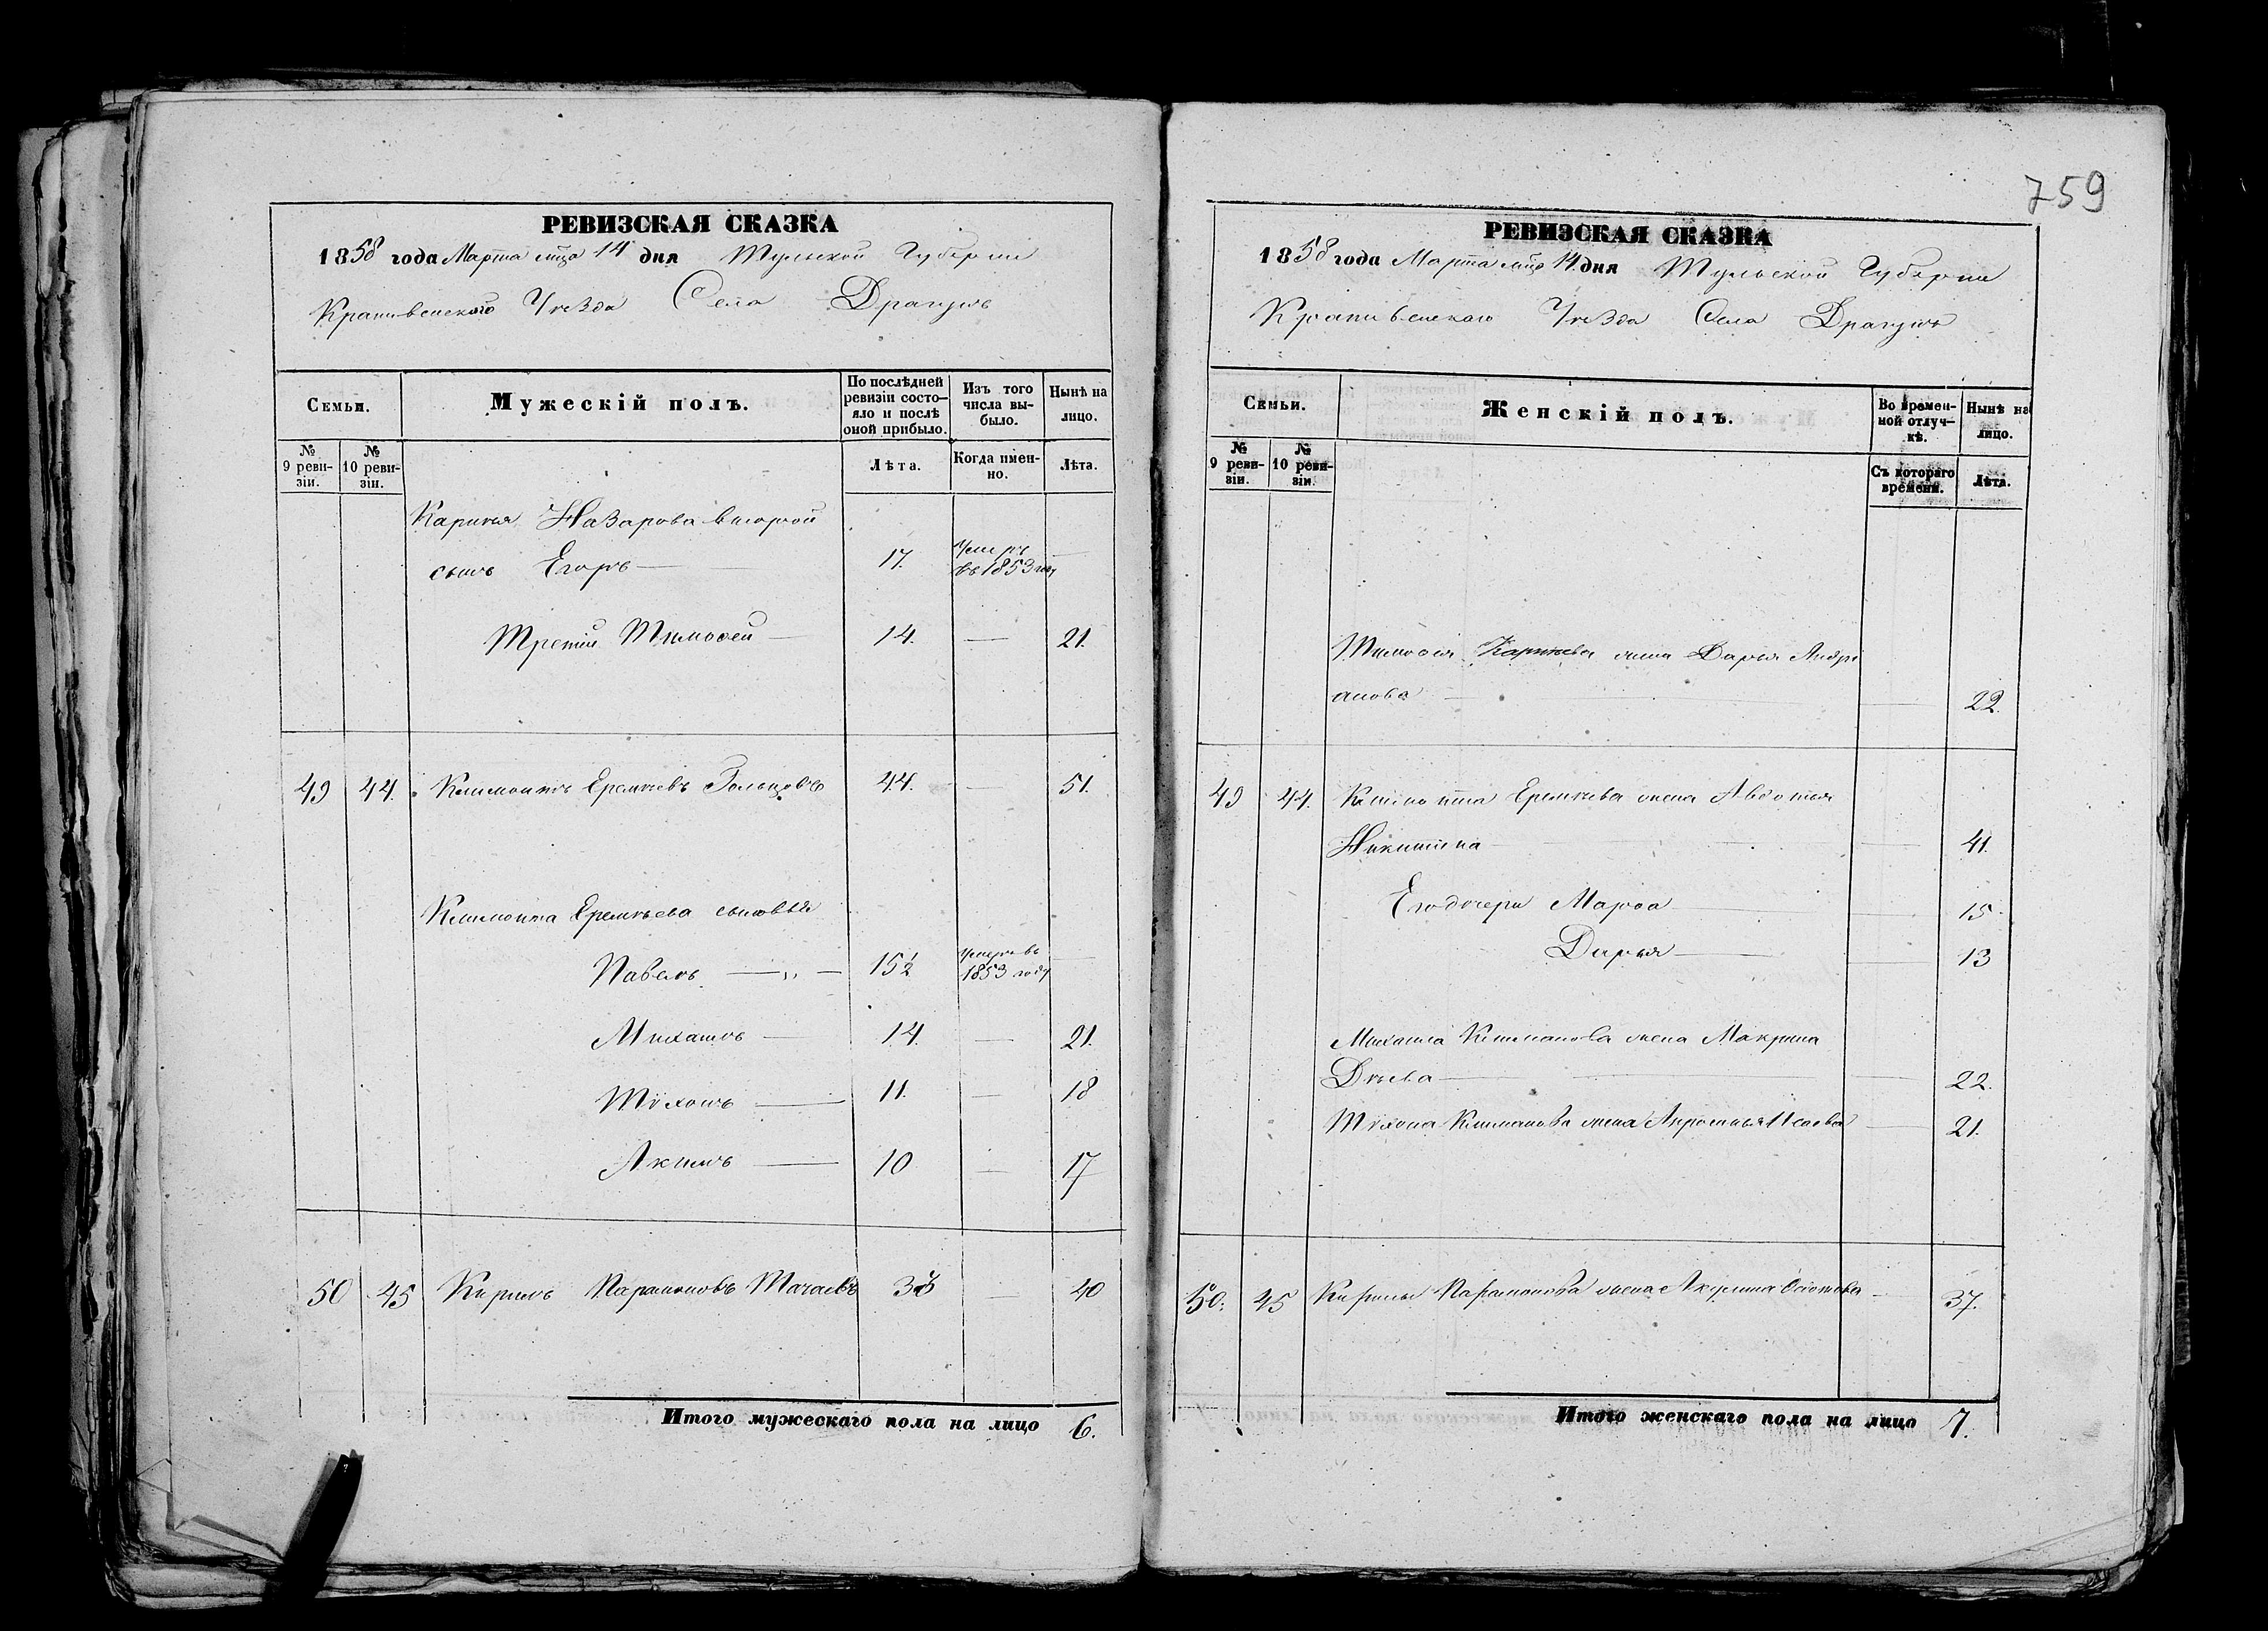 759
РЕВИЗСКАЯ СКАЗКА
1858 года Марта мца 14 дня Тульской Губерніи
Крапивенскаго Уѣзда Села Драгунъ
Семьи.
Мужескій полъ.
По послѣдней ревизіи состояло и послѣ оной прибыло.
Изъ того числа выбыло.
Нынѣ на лицо.
№ 9 ревизіи.
№ 10 ревизіи.
Лѣта.
Когда именно.
Лѣта.
Карпѣя Назарова второй
сынъ Егоръ 17. Умеръ въ 1853 году
Третій Тимоѳей 14. 21.
49 44. Климонтъ Еремѣевъ Гольцовъ 44. 51.
Климонта Еремѣева сыновья
Павелъ 15½ Умеръ въ 1853 году
Михаилъ 14. 21.
Тихонъ 11. 18
Акимъ 10 17
50 45 Кирилъ Парамоновъ 33 40
Итого мужескаго пола на лицо 6.
РЕВИЗСКАЯ СКАЗКА
1858 года Марта мца 14. дня Тульской Губерніи
Крапивенскаго Уѣзда Села Драгунъ
Семьи.
Женскій полъ.
Во временной отлучкѣ.
Нынѣ на лицо.
№ 9 ревизіи.
№ 10 ревизіи.
Съ котораго времени.
Лѣта.
Тимоѳея Карпѣева жена Дарья Андрі
анова 22.
49 44. Климонта Еремѣева жена Авдотья
Никитина 41.
Его дочери Марѳа 15.
Дарья 13
Михаила Климонова жена Макрина
22.
Тихона Климонова жена 21.
50. 45 Кирилы Парамонова жена Акулина 37.
Итого женскаго пола на лицо 7.